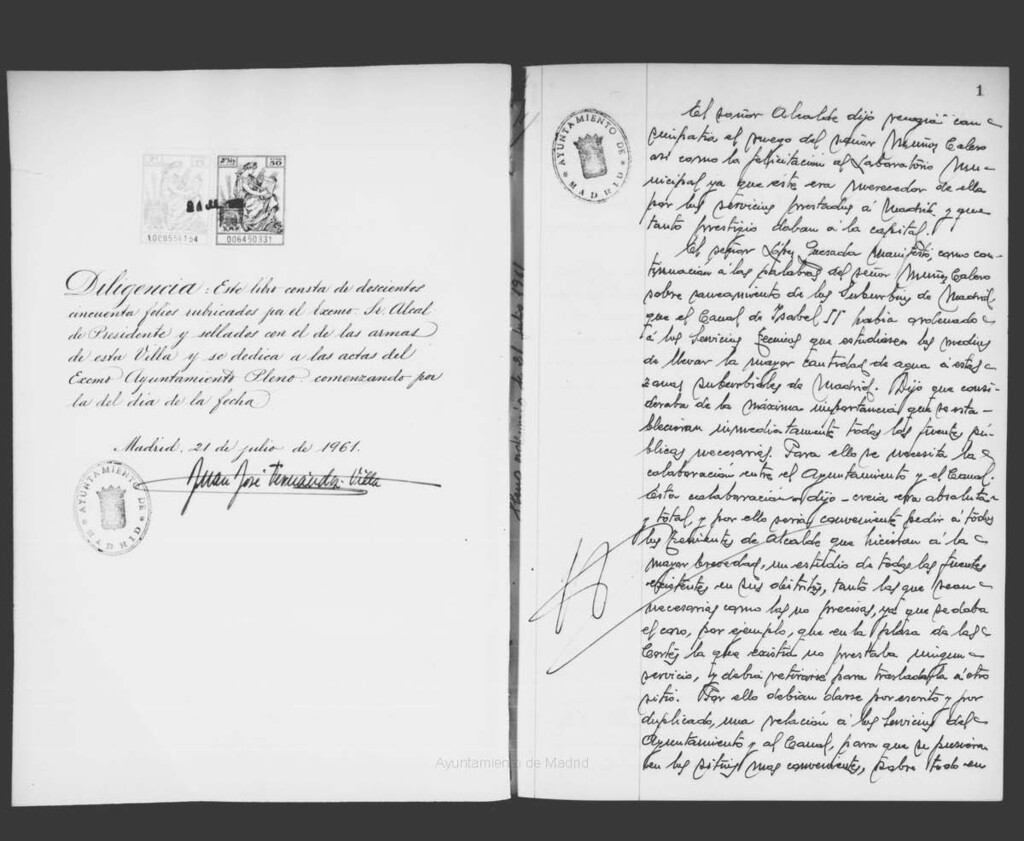 10C8556154
006450331
Diligencia: Este libro consta de descientos
cincuenta folios rubricados por el Excmo. Sr. Alcal
de Presidente y sellados con el de las armas
de esta Villa y se dedica a las actas del
Excmo Ayuntamiento Pleno comenzando por
la del día de la fecha
Madrid, 21 de julio de 1961.
Juan José Fernández-Villa
AYUNTAMIENTO DE MADRID
1
AYUNTAMIENTO DE MADRID
El señor Alcalde dijo recogía con
simpatía el ruego del señor Muñoz Calero
así como la felicitación al Laboratorio Mu-
nicipal ya que este era merecedor de ella
por los servicios prestados á Madrid y que
tanto prestigio daban á la capital.
El señor López Quesada manifestó, como con-
tinuación á las palabras del señor Muñoz Calero
sobre saneamiento de los Suburbios de Madrid,
que el Canal de Isabel II había ordenado
á los Servicios Técnicos que estudiasen los medios
de llevar la mayor cantidad de agua á estas
zonas suburbiales de Madrid. Dijo que consi-
deraba de la máxima importancia que se esta-
blecieran inmediatamente todas las fuentes pú-
blicas necesarias. Para ello se necesita la
colaboración entre el Ayuntamiento y el Canal.
Esta colaboración - dijo - creía era absoluta
y total, y por ello sería conveniente pedir á todos
los Tenientes de Alcalde que hicieran á la
mayor brevedad, un estudio de todas las fuentes
existentes en sus distritos, tanto las que sean
necesarias como las no precisas, ya que se daba
el caso, por ejemplo, que en la plaza de las
Cortes la que existía no prestaba ningun
servicio, y debía retirarse para trasladarla á otro
sitio. Por ello debian darse por escrito y por
duplicado, una relación á los Servicios del
Ayuntamiento y al Canal, para que se pusieran
en los sitios mas convenientes, sobre todo en
Ayuntamiento de Madrid